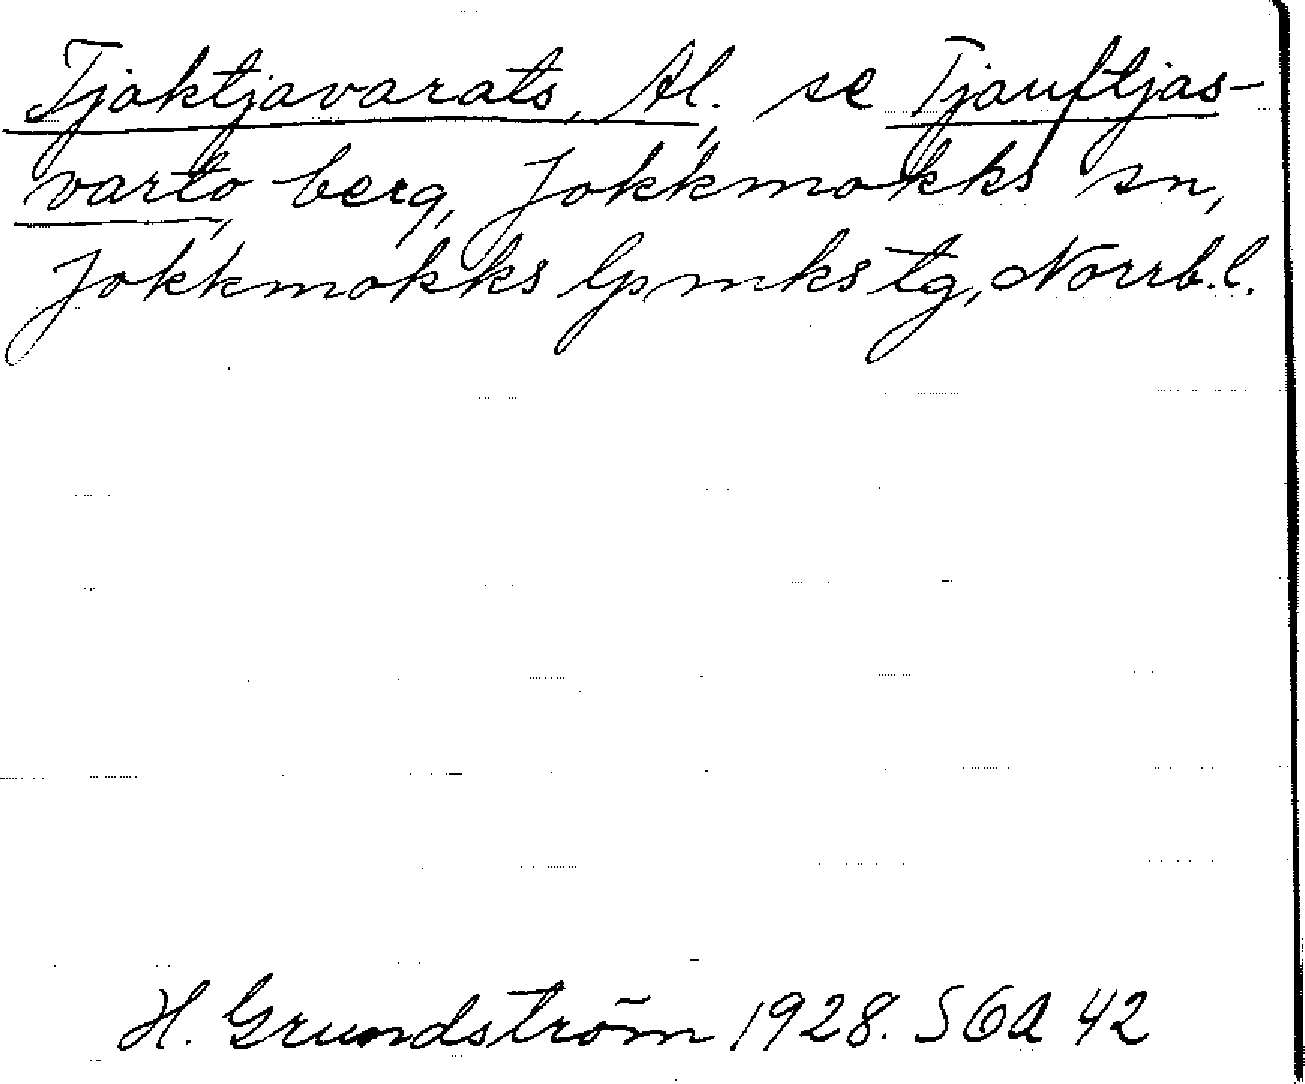 Tjaktjavarats, Al. se Tjauftjas-
varto, berg, Jokkmokks sn,
Jokkmokks lpmks tg, Norrb.l.
H. Grundström 1928. SOA 42